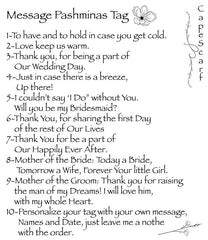 Message Pashminas Tag
CapeScarf
1-To have and to hold in case you get cold.
2-Love keeps us warm.
3-Thank you, for being a part of
Our Wedding Day.
4-Just in case there is a breeze,
Up there!
5-I couldn't say "I Do" without You.
Will you be my Bridesmaid?
6-Thank You, for sharing the first Day
of the rest of Our Lives
7-Thank You for be a part of
Our Happily Ever After.
8-Mother of the Bride: Today a Bride,
Tomorrow a Wife, Forever Your little Girl.
9-Mother of the Groom: Thank you for raising
the man of my Dreams! I will love him,
with my whole Heart.
10-Personalize your tag with your own message,
Names and Date, just leave me a nothe
with the order.